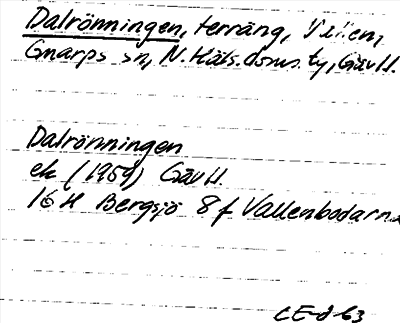 Dalrönningen, terräng, Vallen,
Gnarps sn, N. Häls. doms. ty, Gävl l.
Dalrönningen
ek (1959) Gävl l.
16H Bergsjö 8 f Vallenbodarna
CE-d-63